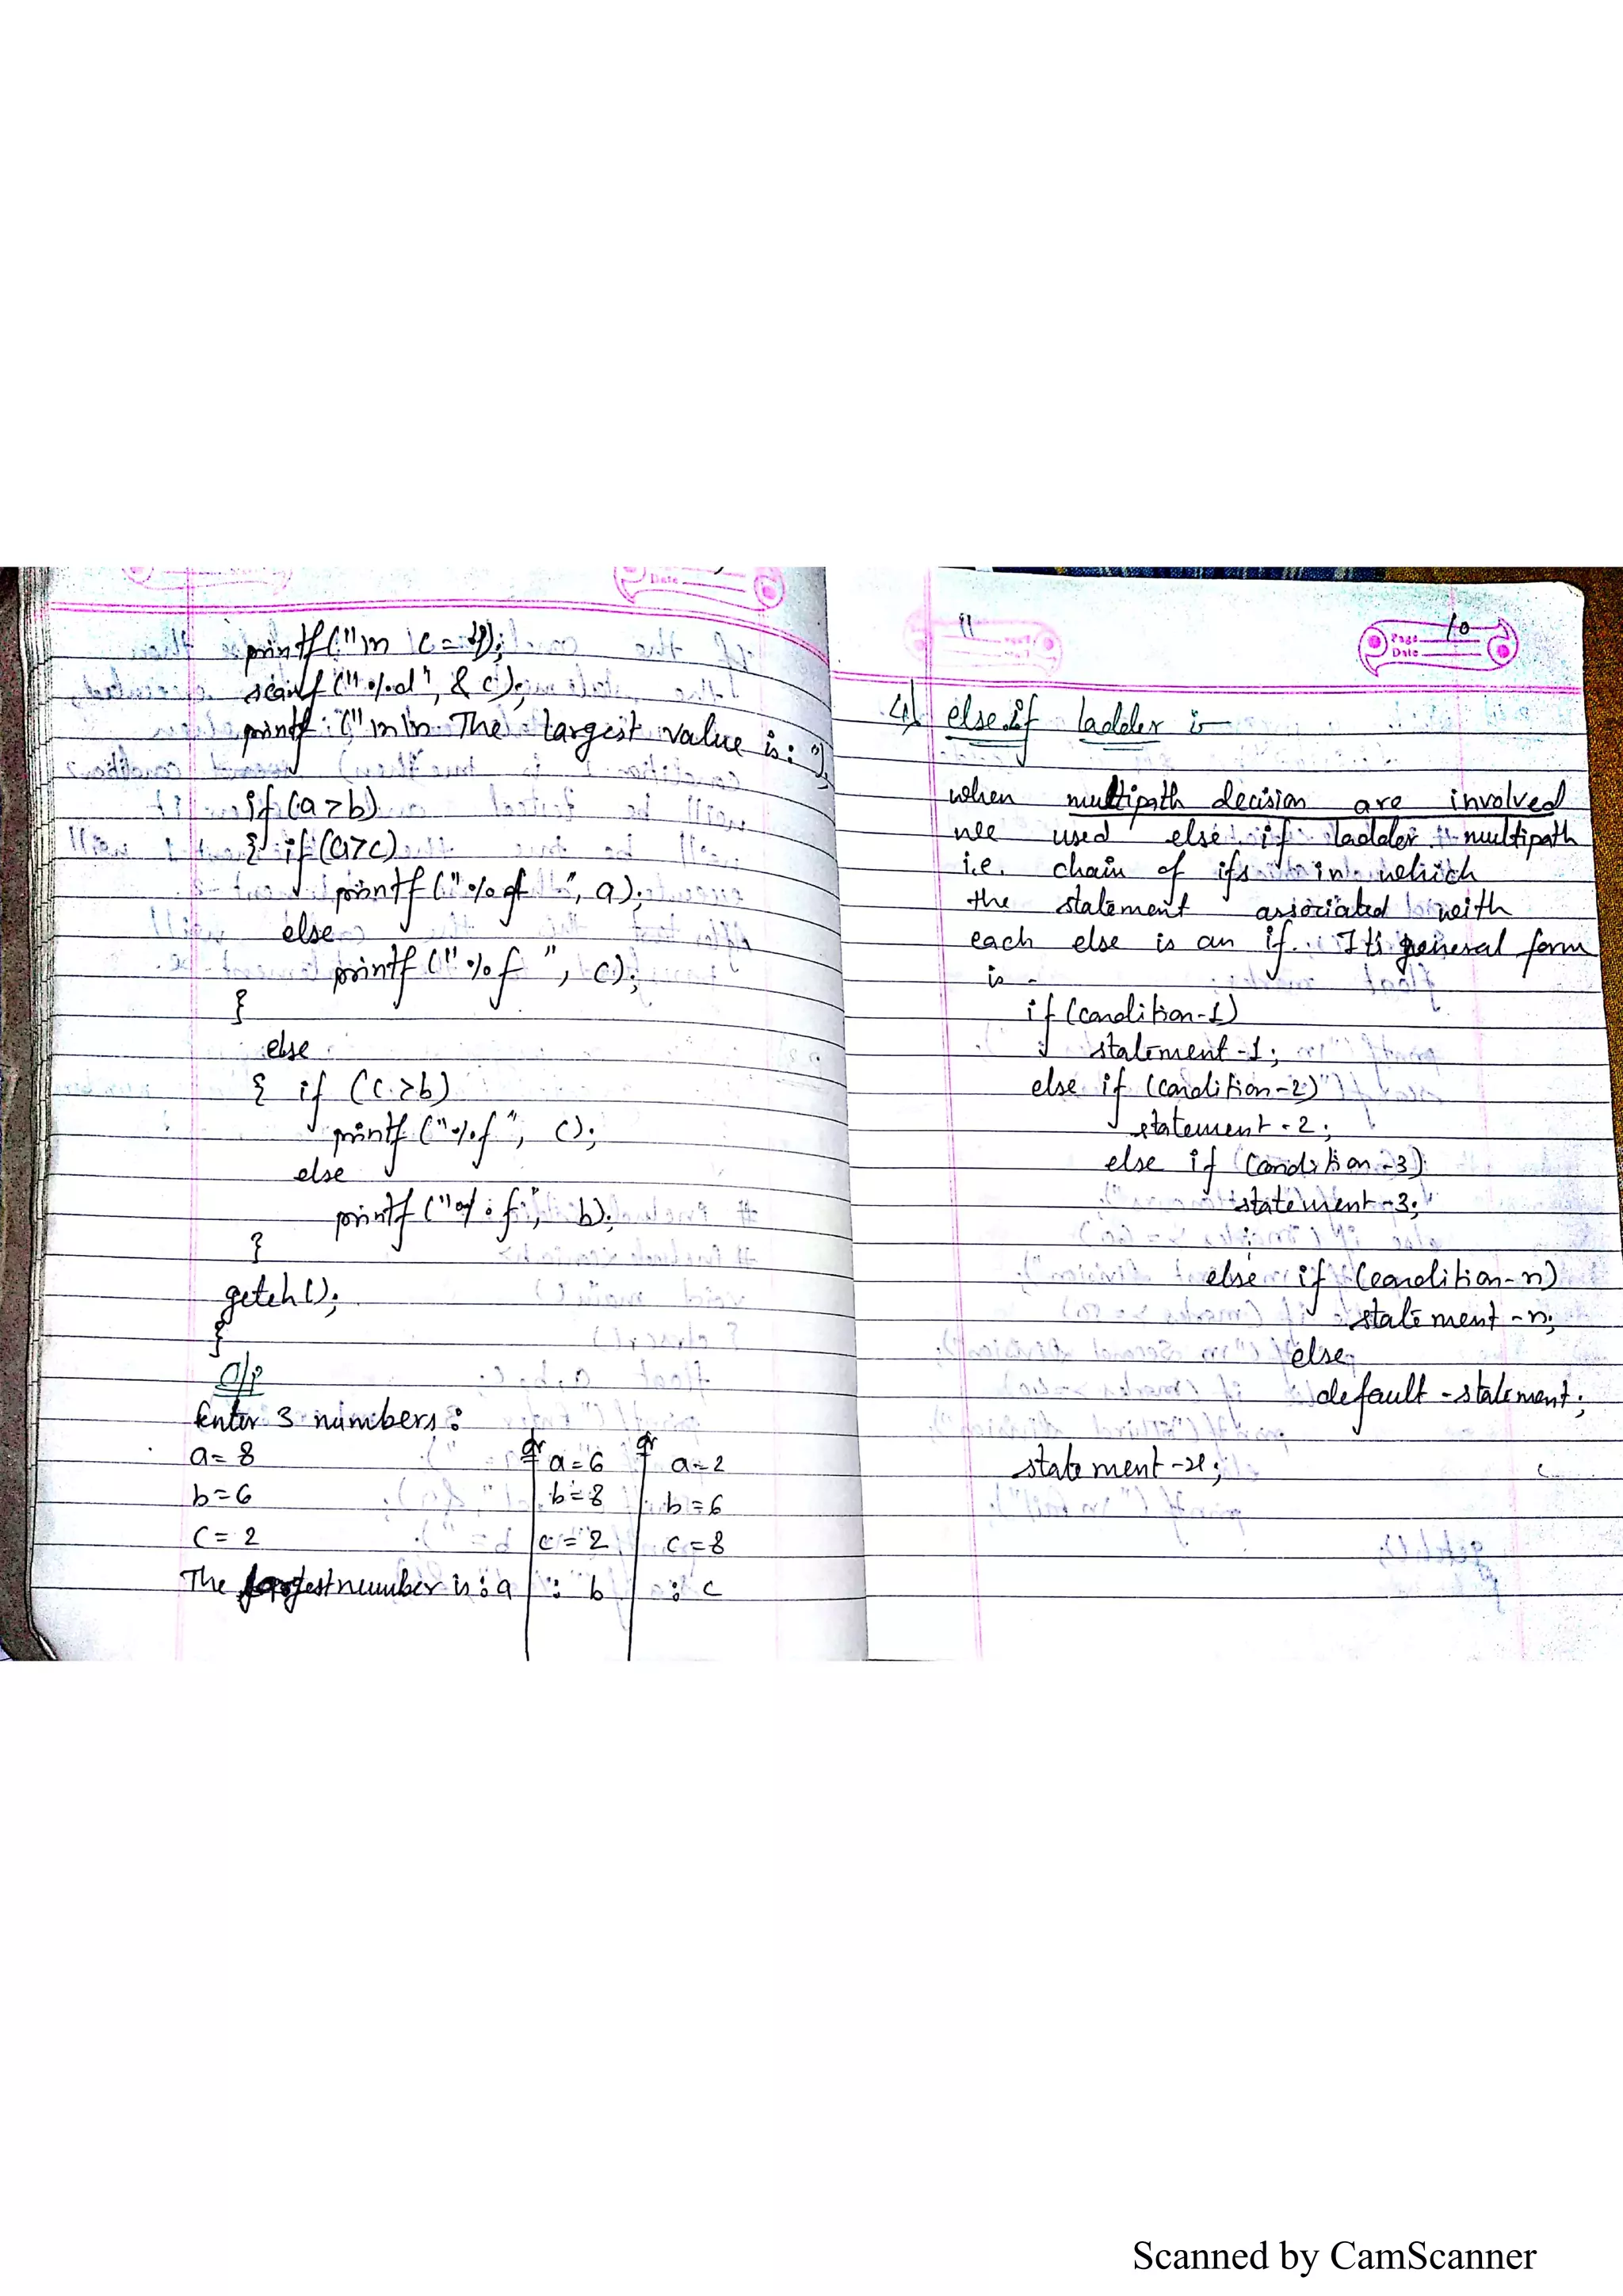 printf("\n c = ");
scanf ("%d", & c);
printf ("\n\n The largest value is: ");
if (a>b)
{ if (a>c)
printf ("%f ", a);
else
printf ("%f ", c);
}
else
{ if (c>b)
printf ("%f", c);
else
printf ("%f", b);
}
getch();
}
O/P
Enter 3 numbers:
a= 8 or a=6 or a=2
b=6 b=8 b=6
c= 2 c=2 c=8
The largest number is : a : b : c
11
Page 10
Date
4) else if ladder :-
when multipath decision are involved
we used else if ladder. multipath
i.e. chain of ifs in which
the statement associated with
each else is an if. Its general form
is -
if (condition-1)
statement-1;
else if (condition-2)
statement-2;
else if (condition-3)
statement-3;
else if (condition-n)
statement-n;
else
default-statement;
statement-x;
Scanned by CamScanner